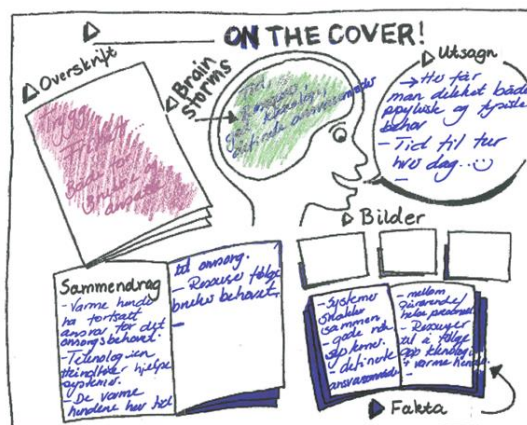 ON THE COVER!
Overskrift
Trygg
både for
bruker og
ansatte
Brain
storms
Tid,
god teknologi,
definerte ansvarsområder
Utsagn
→ Her får
man dekket både
psykiske og fysiske
behov
- Tid til tur
hver dag...
-
Bilder
Sammendrag
- Varme hender
ha fortsatt
ansvar for det
omsorgsbehovet.
- Teknologien
hjelpe
systemer.
- De varme
hendene har tid
til omsorg.
- Ressurser følge
bruker behovet.
-
- Systemer
snakker
sammen
- gode
systemer.
- definerte
ansvarsområder
- mellom
pårørende/
helse personell
- Ressurser
til å følge
opp teknologi
+ varme hender.
-
Fakta